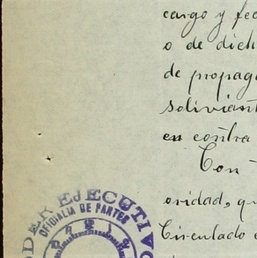 cargo y fec
o de dich
de propag
soliviant
en contra
Con
oridad, qu
Circulado
PODER EJECUTIVO
OFICIALIA DE PARTES